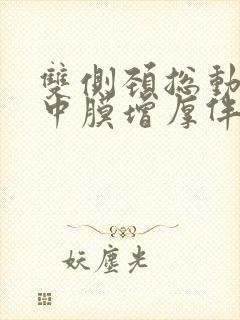 雙側頸総動
中膜增厚伴
妖塵光